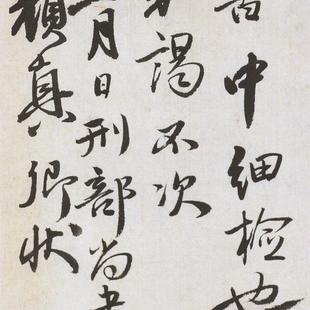 中細檢也
謁不次
月日刑部尚書
顏真卿狀